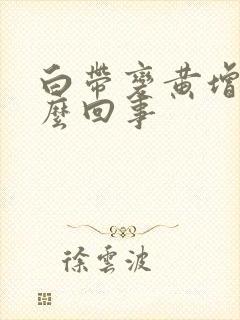 白帶變黃增
麼回事
徐雲波